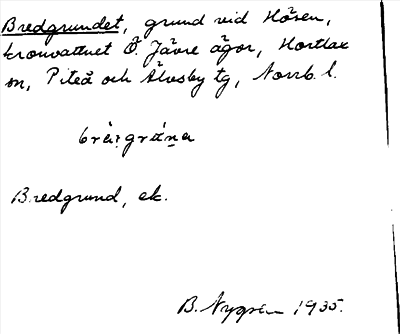 Bredgrundet, grund vid Håsen,
kronvattnet Ö. Jävre ägor, Hortlax
sn, Piteå och Älvsby tg, Norrb. l.
Bredgrund, ek.
B. Nygren 1935.